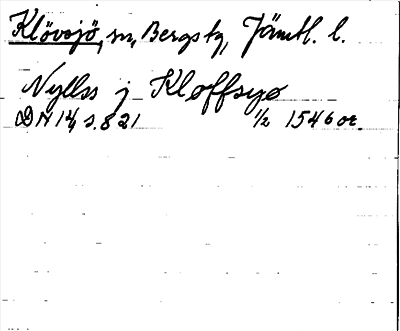 Klövsjö, sn, Bergs tg, Jämtl. l.
Nyllss j Kløffsyø
DN 14, s. 821 1/2 1546 or.